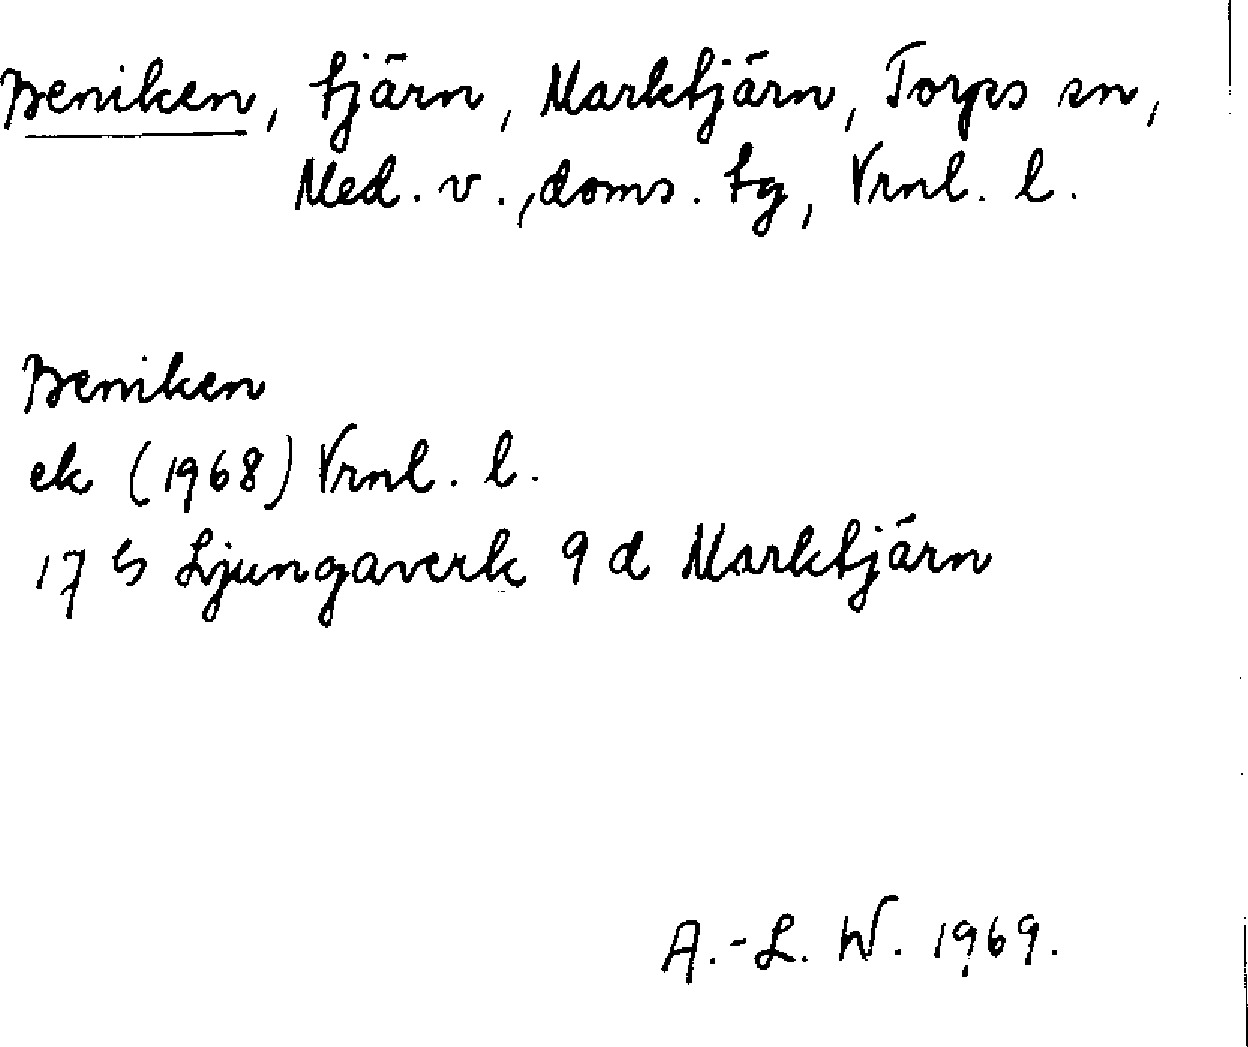 Beniken, tjärn, Marktjärn, Torps sn,
Med. v., doms. tg, Vrnl. l.
Beniken
ek (1968) Vrnl. l.
17 G Ljungaverk 9 d Marktjärn
A.-L. W. 1969.